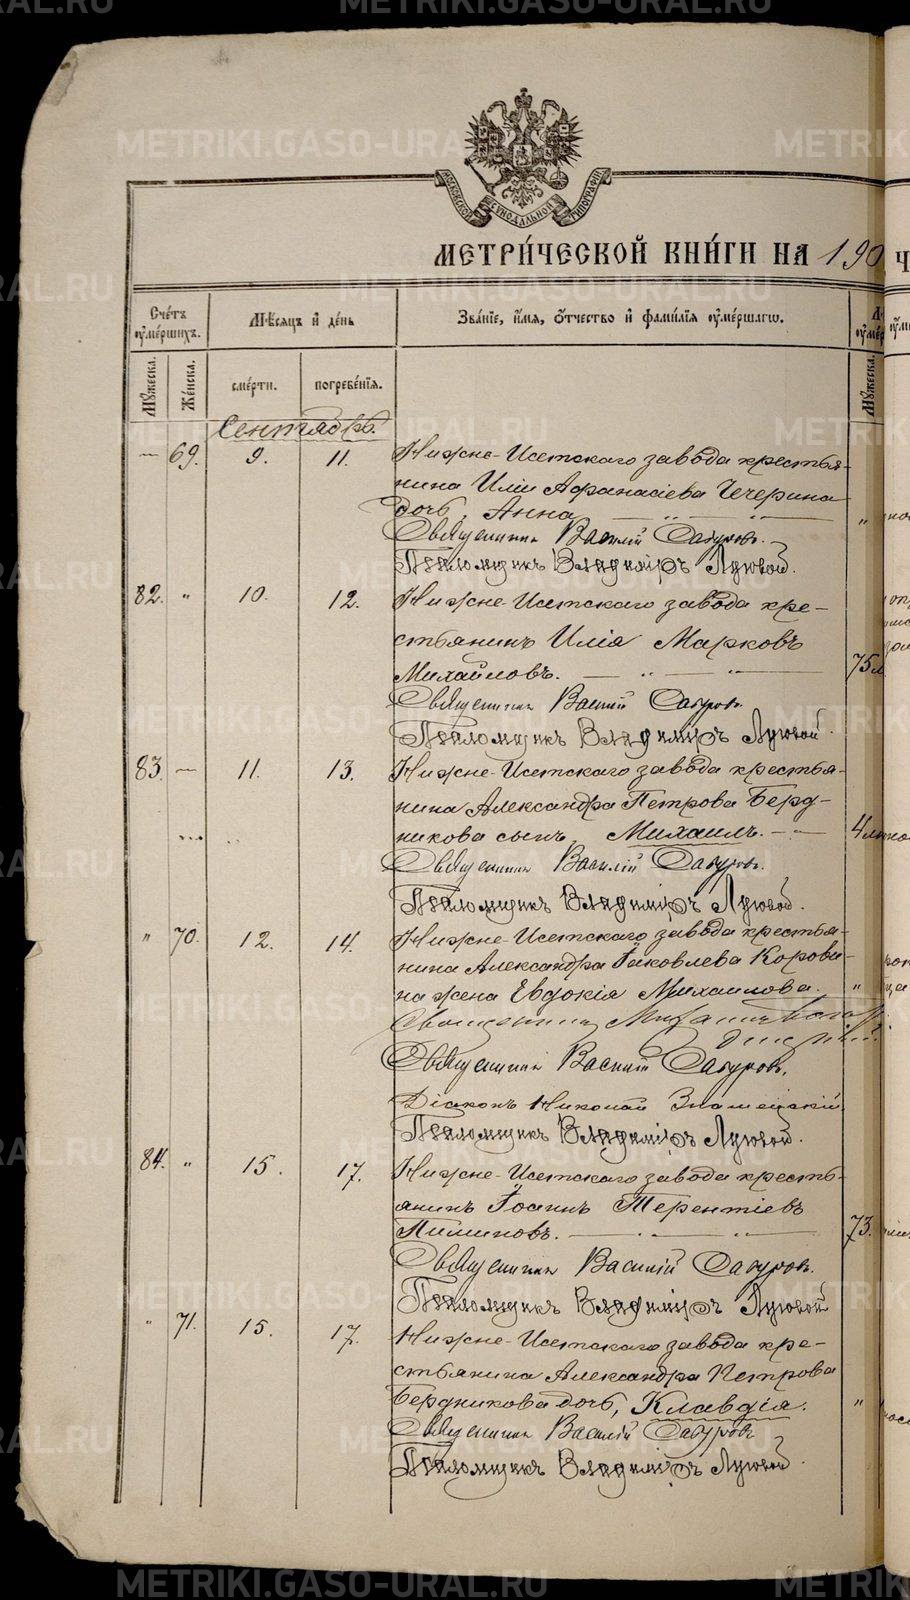 МОСКОВСКОЙ СѴНОДАЛЬНОЙ ТИПОГРАФІИ
МЕТРИ́ЧЕСКОЙ КНИ́ГИ НА 190
Сче́тъ ᲂу҆ме́ршихъ.
Мѣсяцъ и҆ де́нь
Зва́нїе, и҆́мя, ѻ҆́тчество и҆ фами́лїя ᲂу҆ме́ршагѡ.
Мꙋ́жеска.
Же́нска.
сме́рти.
погребе́нїя.
Мꙋ́жеска.
Сентябрь.
— 69. 9. 11. Нижне-Исетскаго завода крестья-
нина Иліи Афанасіева Чечерина
дочь, Анна — " — " —
Священник Василій Сапуров.
Псаломщикъ Владиміръ Луговой.
82. " 10. 12. Нижне-Исетскаго завода кре-
стьянинъ Илія Марковъ
Михайловъ. — " — " — 75 л
Священник Василій Сапуров.
Псаломщикъ Владиміръ Луговой.
83. — 11. 13. Нижне-Исетскаго завода крестья-
нина Александра Петрова Берд-
никова сынъ, Михаилъ. — " — 4
Священник Василій Сапуров.
Псаломщикъ Владиміръ Луговой.
" 70. 12. 14. Нижне-Исетскаго завода крестья-
нина Александра Іаковлева Корови-
на жена Евдокія Михаилова. "
Священник
Священник Василій Сапуров.
Діаконъ Николай Знаменскій
Псаломщикъ Владиміръ Луговой.
84. " 15. 17. Нижне-Исетскаго завода кресть-
янинъ Іоаннъ Терентіевъ
Пиминовъ. — " — " — 73.
Священник Василій Сапуров.
Псаломщикъ Владиміръ Луговой
" 71. 15. 17. Нижне-Исетскаго завода кре-
стьянина Александра Петрова
Бердникова дочь, Клавдія. "
Священник Василій Сапуров
Псаломщикъ Владиміръ Луговой.
METRIKI.GASO-URAL.RU